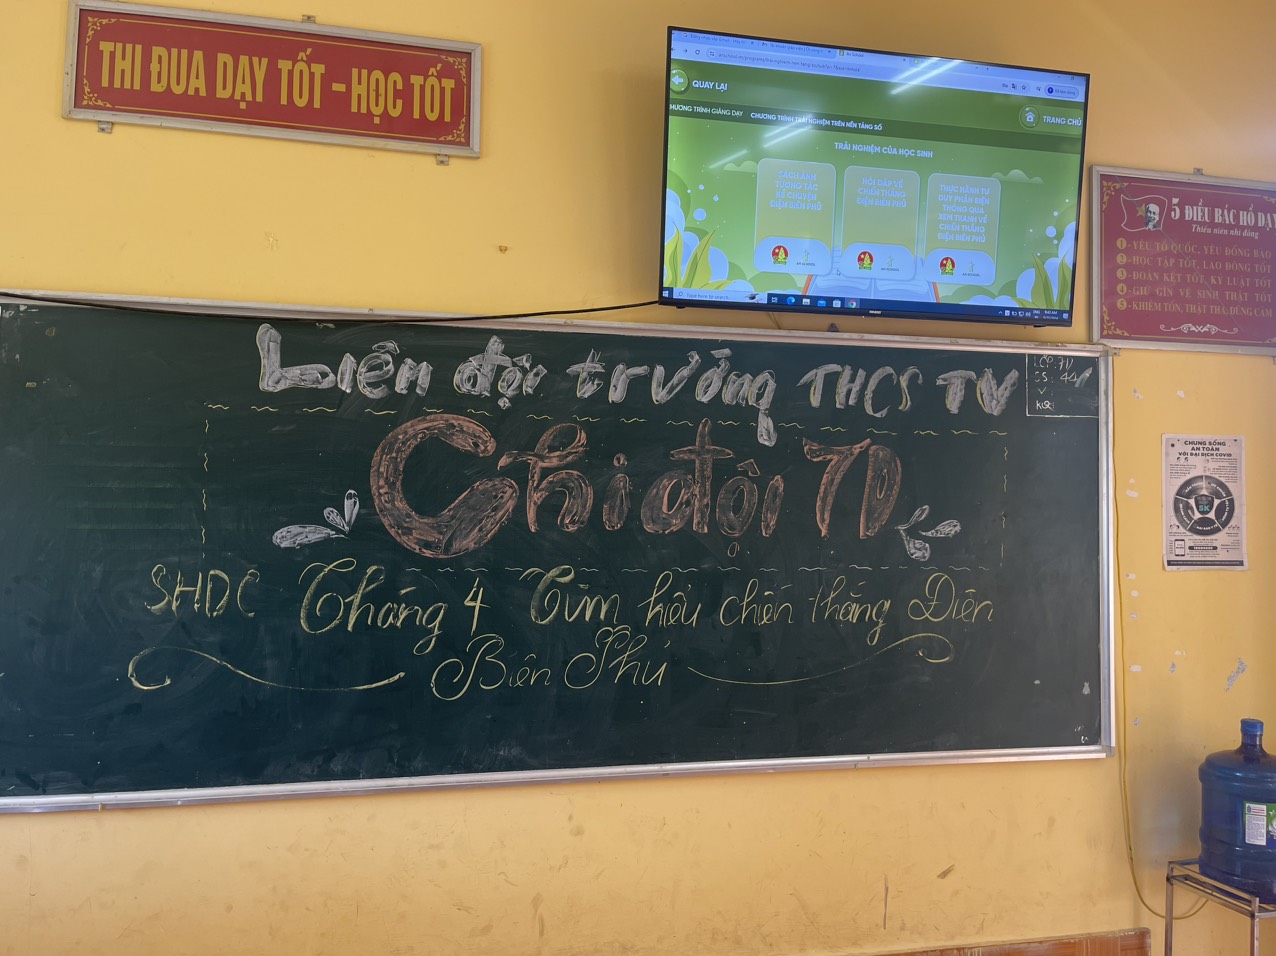 THI ĐUA DẠY TỐT - HỌC TỐT
QUAY LẠI
TRANG CHỦ
HƯƠNG TRÌNH GIẢNG DẠY CHƯƠNG TRÌNH TRẢI NGHIỆM TRÊN NỀN TẢNG SỐ
TRẢI NGHIỆM CỦA HỌC SINH
SÁCH ẢNH
TƯƠNG TÁC
KỂ CHUYỆN
ĐIỆN BIÊN PHỦ
HỎI ĐÁP VỀ
CHIẾN THẮNG
ĐIỆN BIÊN PHỦ
THỰC HÀNH TƯ
DUY PHẢN BIỆN
THÔNG QUA
XEM TRANH VỀ
CHIẾN THẮNG
ĐIỆN BIÊN PHỦ
5 ĐIỀU BÁC HỒ DẠY
Thiếu niên nhi đồng
1 - YÊU TỔ QUỐC, YÊU ĐỒNG BÀO
2 - HỌC TẬP TỐT, LAO ĐỘNG TỐT
3 - ĐOÀN KẾT TỐT, KỶ LUẬT TỐT
4 - GIỮ GÌN VỆ SINH THẬT TỐT
5 - KHIÊM TỐN, THẬT THÀ, DŨNG CẢM
Liên đội trường THCS TV
Chi đội 7D
SHDC Tháng 4 Tìm hiểu chiến thắng Điên
Biên Phủ
CHUNG SỐNG
AN TOÀN
VỚI ĐẠI DỊCH COVID
5K